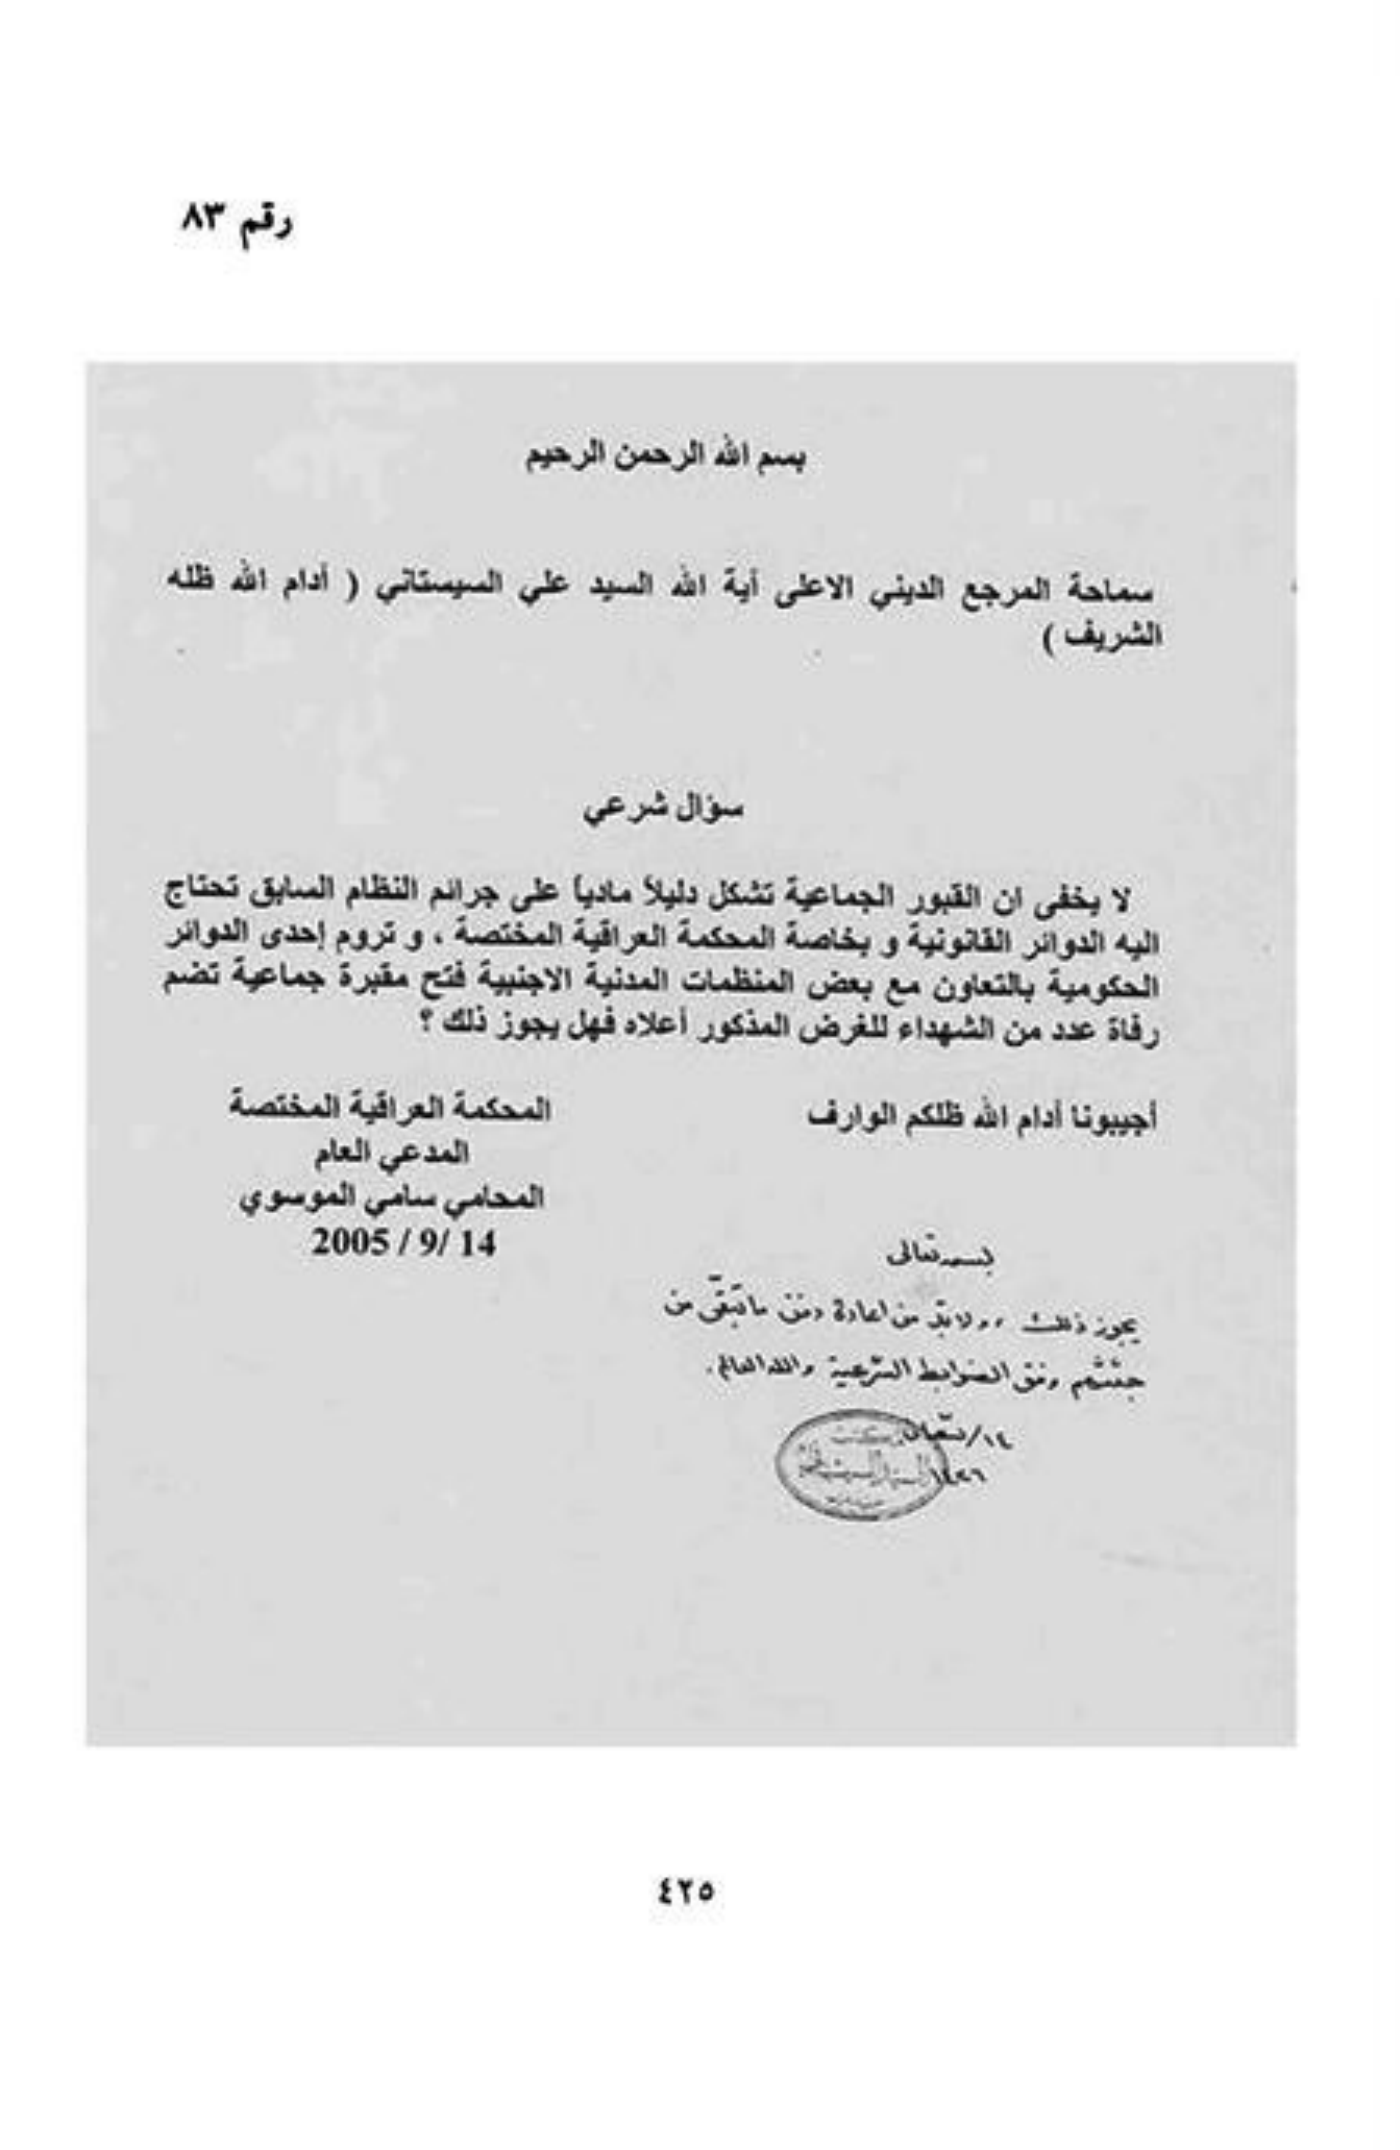 رقم ٨٣
بسم الله الرحمن الرحيم
سماحة المرجع الديني الاعلى أية الله السيد علي السيستاني ( أدام الله ظله
الشريف )
سؤال شرعي
لا يخفى ان القبور الجماعية تشكل دليلاً مادياً على جرائم النظام السابق تحتاج
اليه الدوائر القانونية و بخاصة المحكمة العراقية المختصة ، و تروم إحدى الدوائر
الحكومية بالتعاون مع بعض المنظمات المدنية الاجنبية فتح مقبرة جماعية تضم
رفاة عدد من الشهداء للغرض المذكور أعلاه فهل يجوز ذلك ؟
أجيبونا أدام الله ظلكم الوارف
المحكمة العراقية المختصة
المدعي العام
المحامي سامي الموسوي
14 /9 / 2005
بسمه تعالى
يجوز ذلك ، ولابدّ من اعادة دفن ما تبقّى من
جثثهم وفق الضوابط الشرعية والله العالم.
١٤/شعبان
١٤٢٦
مكتب
السيد السيستاني
٤٢٥